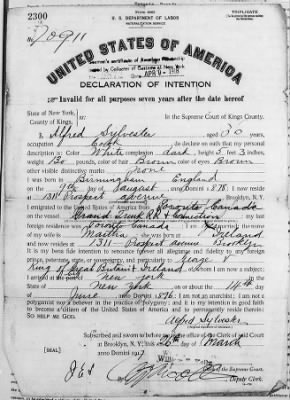 2300
TRIPLICATE
U. S. DEPARTMENT OF LABOR
No. 20911
UNITED STATES OF AMERICA
DECLARATION OF INTENTION
Invalid for all purposes seven years after the date hereof
State of New York,
County of Kings, ss:
In the Supreme Court of Kings County.
I, Alfred Sylvester, aged
occupation, do declare on oath that my personal
description is: Color White, complexion dark, height 5 feet 3 inches,
weight pounds, color of hair Brown, color of eyes Brown
other visible distinctive marks none
I was born in Birmingham England
on the 9th day of August, anno Domini 1 ; I now reside
at Prospect avenue, Brooklyn, N.Y.
I emigrated to the United States of America from Toronto Canada
on the vessel Grand Trunk RR; my last
foreign residence was Toronto Canada
my wife is Martha; she was born Ireland
and now resides at 311 Prospect avenue Brooklyn
It is my bona fide intention to renounce forever all allegiance and fidelity to any foreign
prince, potentate, state, or sovereignty, and particularly to George V
King of Great Britain & Ireland, of whom I am now a subject;
I arrived at the port of New York, in the
State of New York, on or about the 14th day
of June, anno Domini 1 ; I am not an anarchist; I am not a
polygamist nor a believer in the practice of polygamy; and it is my intention in good faith
to become a citizen of the United States of America and to permanently reside therein:
SO HELP ME GOD.
Alfred Sylvester
Subscribed and sworn to before me in the office of the Clerk of said Court
at Brooklyn, N. Y., this 26th day of March
anno Domini 191
[SEAL]
of the Supreme Court.
Deputy Clerk.